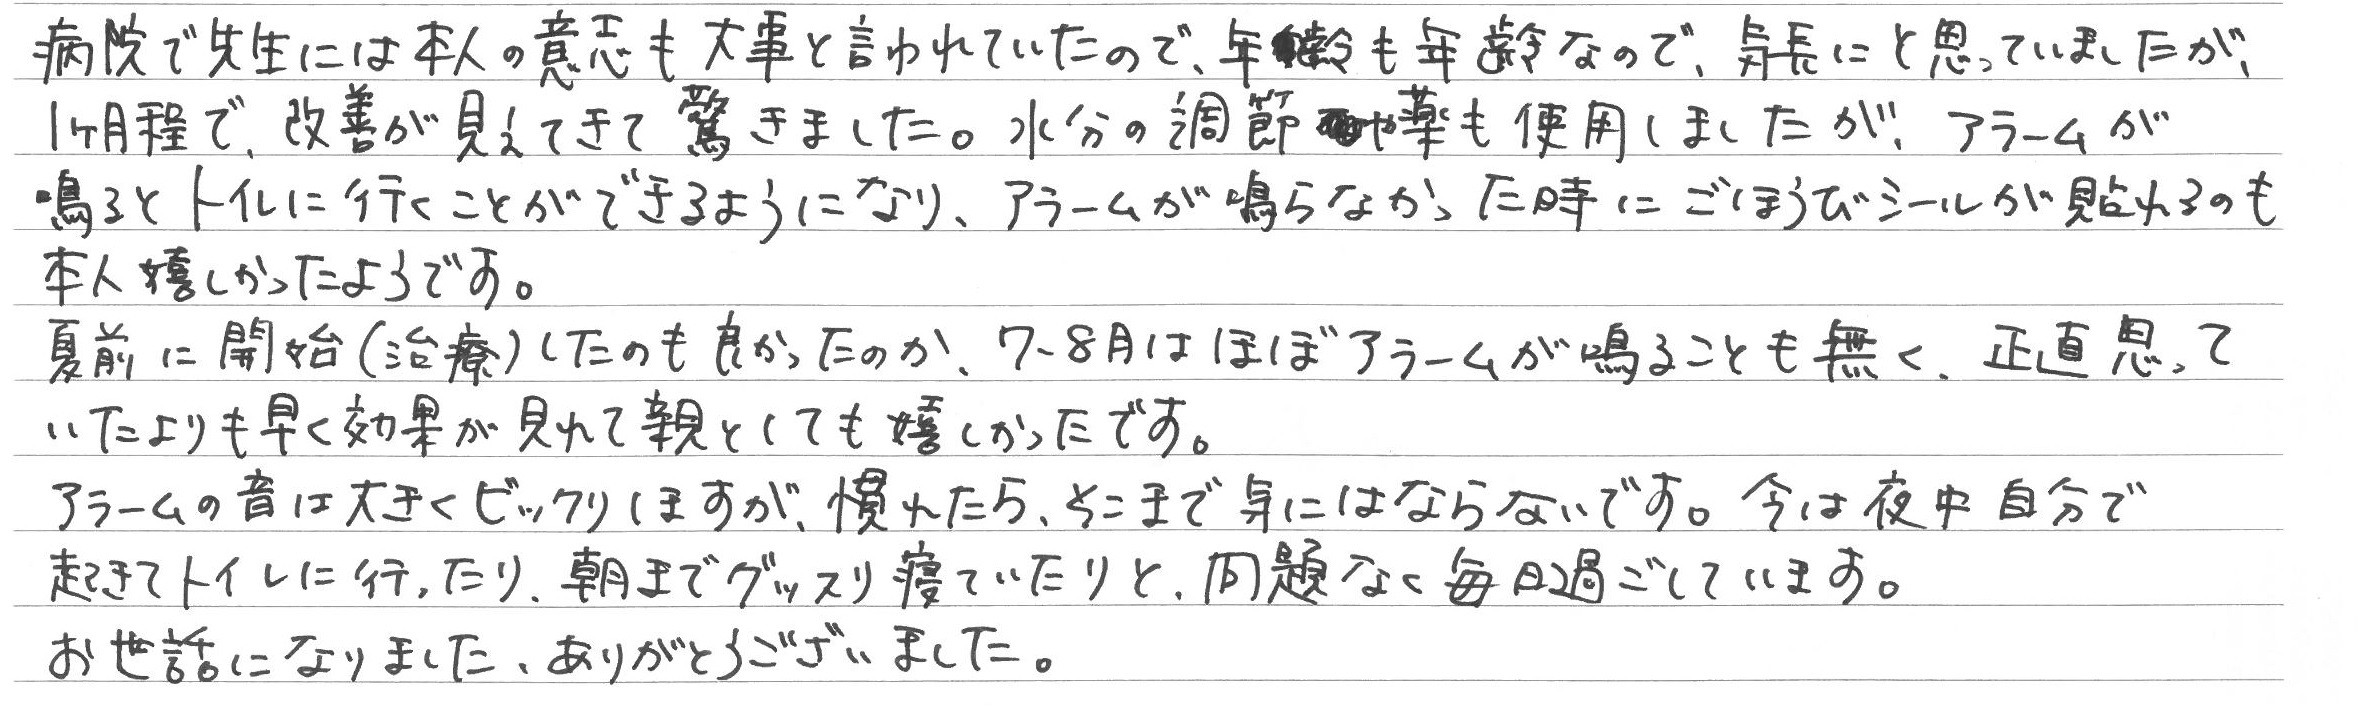 病院で先生には本人の意志も大事と言われていたので、年齢も年齢なので、気長にと思っていましたが、
1ヶ月程で、改善が見えてきて驚きました。水分の調節や薬も使用しましたが、アラームが
鳴るとトイレに行くことができるようになり、アラームが鳴らなかった時にごほうびシールが貼れるのも
本人嬉しかったようです。
夏前に開始(治療)したのも良かったのか、7-8月はほぼアラームが鳴ることも無く、正直思って
いたよりも早く効果が見れて親としても嬉しかったです。
アラームの音は大きくビックリしますが、慣れたら、そこまで気にはならないです。今は夜中自分で
起きてトイレに行ったり、朝までグッスリ寝ていたりと、問題なく毎日過ごしています。
お世話になりました、ありがとうございました。